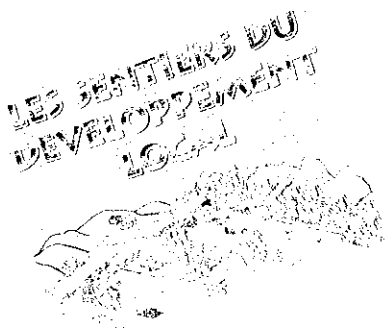 LES SENTIERS DU
DEVELOPPEMENT
LOCAL